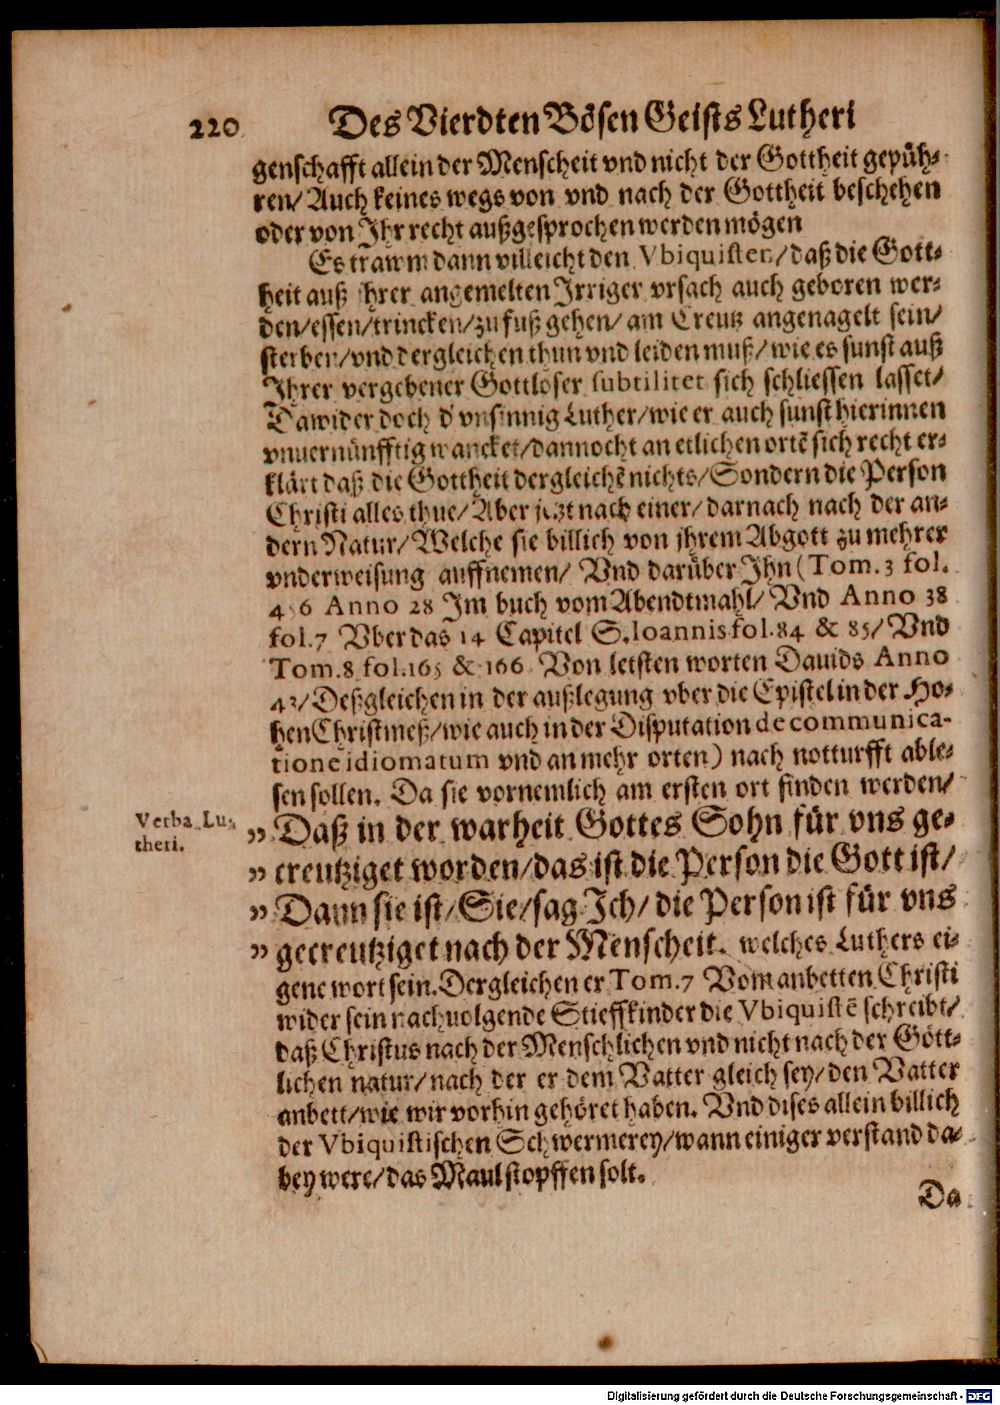 220 Des Vierdten Bösen Geists Lutheri
genschafft allein der Menscheit vnd nicht der Gottheit gepüh-
ren/ Auch keines wegs von vnd nach der Gottheit beschehen
oder von Ihr recht außgesprochen werden mögen
Es trawm dann villeicht den Vbiquisten/ daß die Gott-
heit auß ihrer angemelten Irriger vrsach auch geboren wer-
den/ essen/ trincken/ zu fuß gehen/ am Creutz angenagelt sein/
sterben/ vnd dergleichen thun vnd leiden muß/ wie es sunst auß
Ihrer vergebener Gottloser subtilitet sich schliessen lasset/
Dawider doch d' vnsinnig Luther/ wie er auch sunst hierinnen
vnuernünfftig wancket/ dannocht an etlichen ortē sich recht er-
klärt daß die Gottheit dergleichē nichts/ Sondern die Person
Christi alles thue/ Aber jetzt nach einer/ darnach nach der an-
dern Natur/ Welche sie billich von jhrem Abgott zu mehrer
vnderweisung auffnemen/ Vnd darüber Ihn (Tom. 3 fol.
4 6 Anno 28 Im buch vom Abendtmahl/ Vnd Anno 38
fol. 7 Vber das 14 Capitel S. Ioannis fol. 84 & 85/ Vnd
Tom. 8 fol. 165 & 166 Von letsten worten Dauids Anno
43/ Deßgleichen in der außlegung vber die Epistel in der Ho-
hen Christmeß/ wie auch in der Disputation de communica-
tione idiomatum vnd an mehr orten) nach notturfft able-
sen sollen. Da sie vornemlich am ersten ort finden werden/
Verba Lu-
theri.
" Daß in der warheit Gottes Sohn für vns ge-
" creutziget worden/ das ist die Person die Gott ist/
" Dann sie ist/ Sie/ sag Ich/ die Person ist für vns
" gecreutziget nach der Menscheit. welches Luthers ei-
gene wort sein. Dergleichen er Tom. 7 Vom anbetten Christi
wider sein nachuolgende Stieffkinder die Vbiquistē schreibt/
daß Christus nach der Menschlichen vnd nicht nach der Gött-
lichen natur/ nach der er dem Vatter gleich sey/ den Vatter
anbett/ wie wir vorhin gehöret haben. Vnd dises allein billich
der Vbiquistischen Schwermerey/ wann einiger verstand da-
bey were/ das Maul stopffen solt.
Da
Digitalisierung gefördert durch die Deutsche Forschungsgemeinschaft - DFG